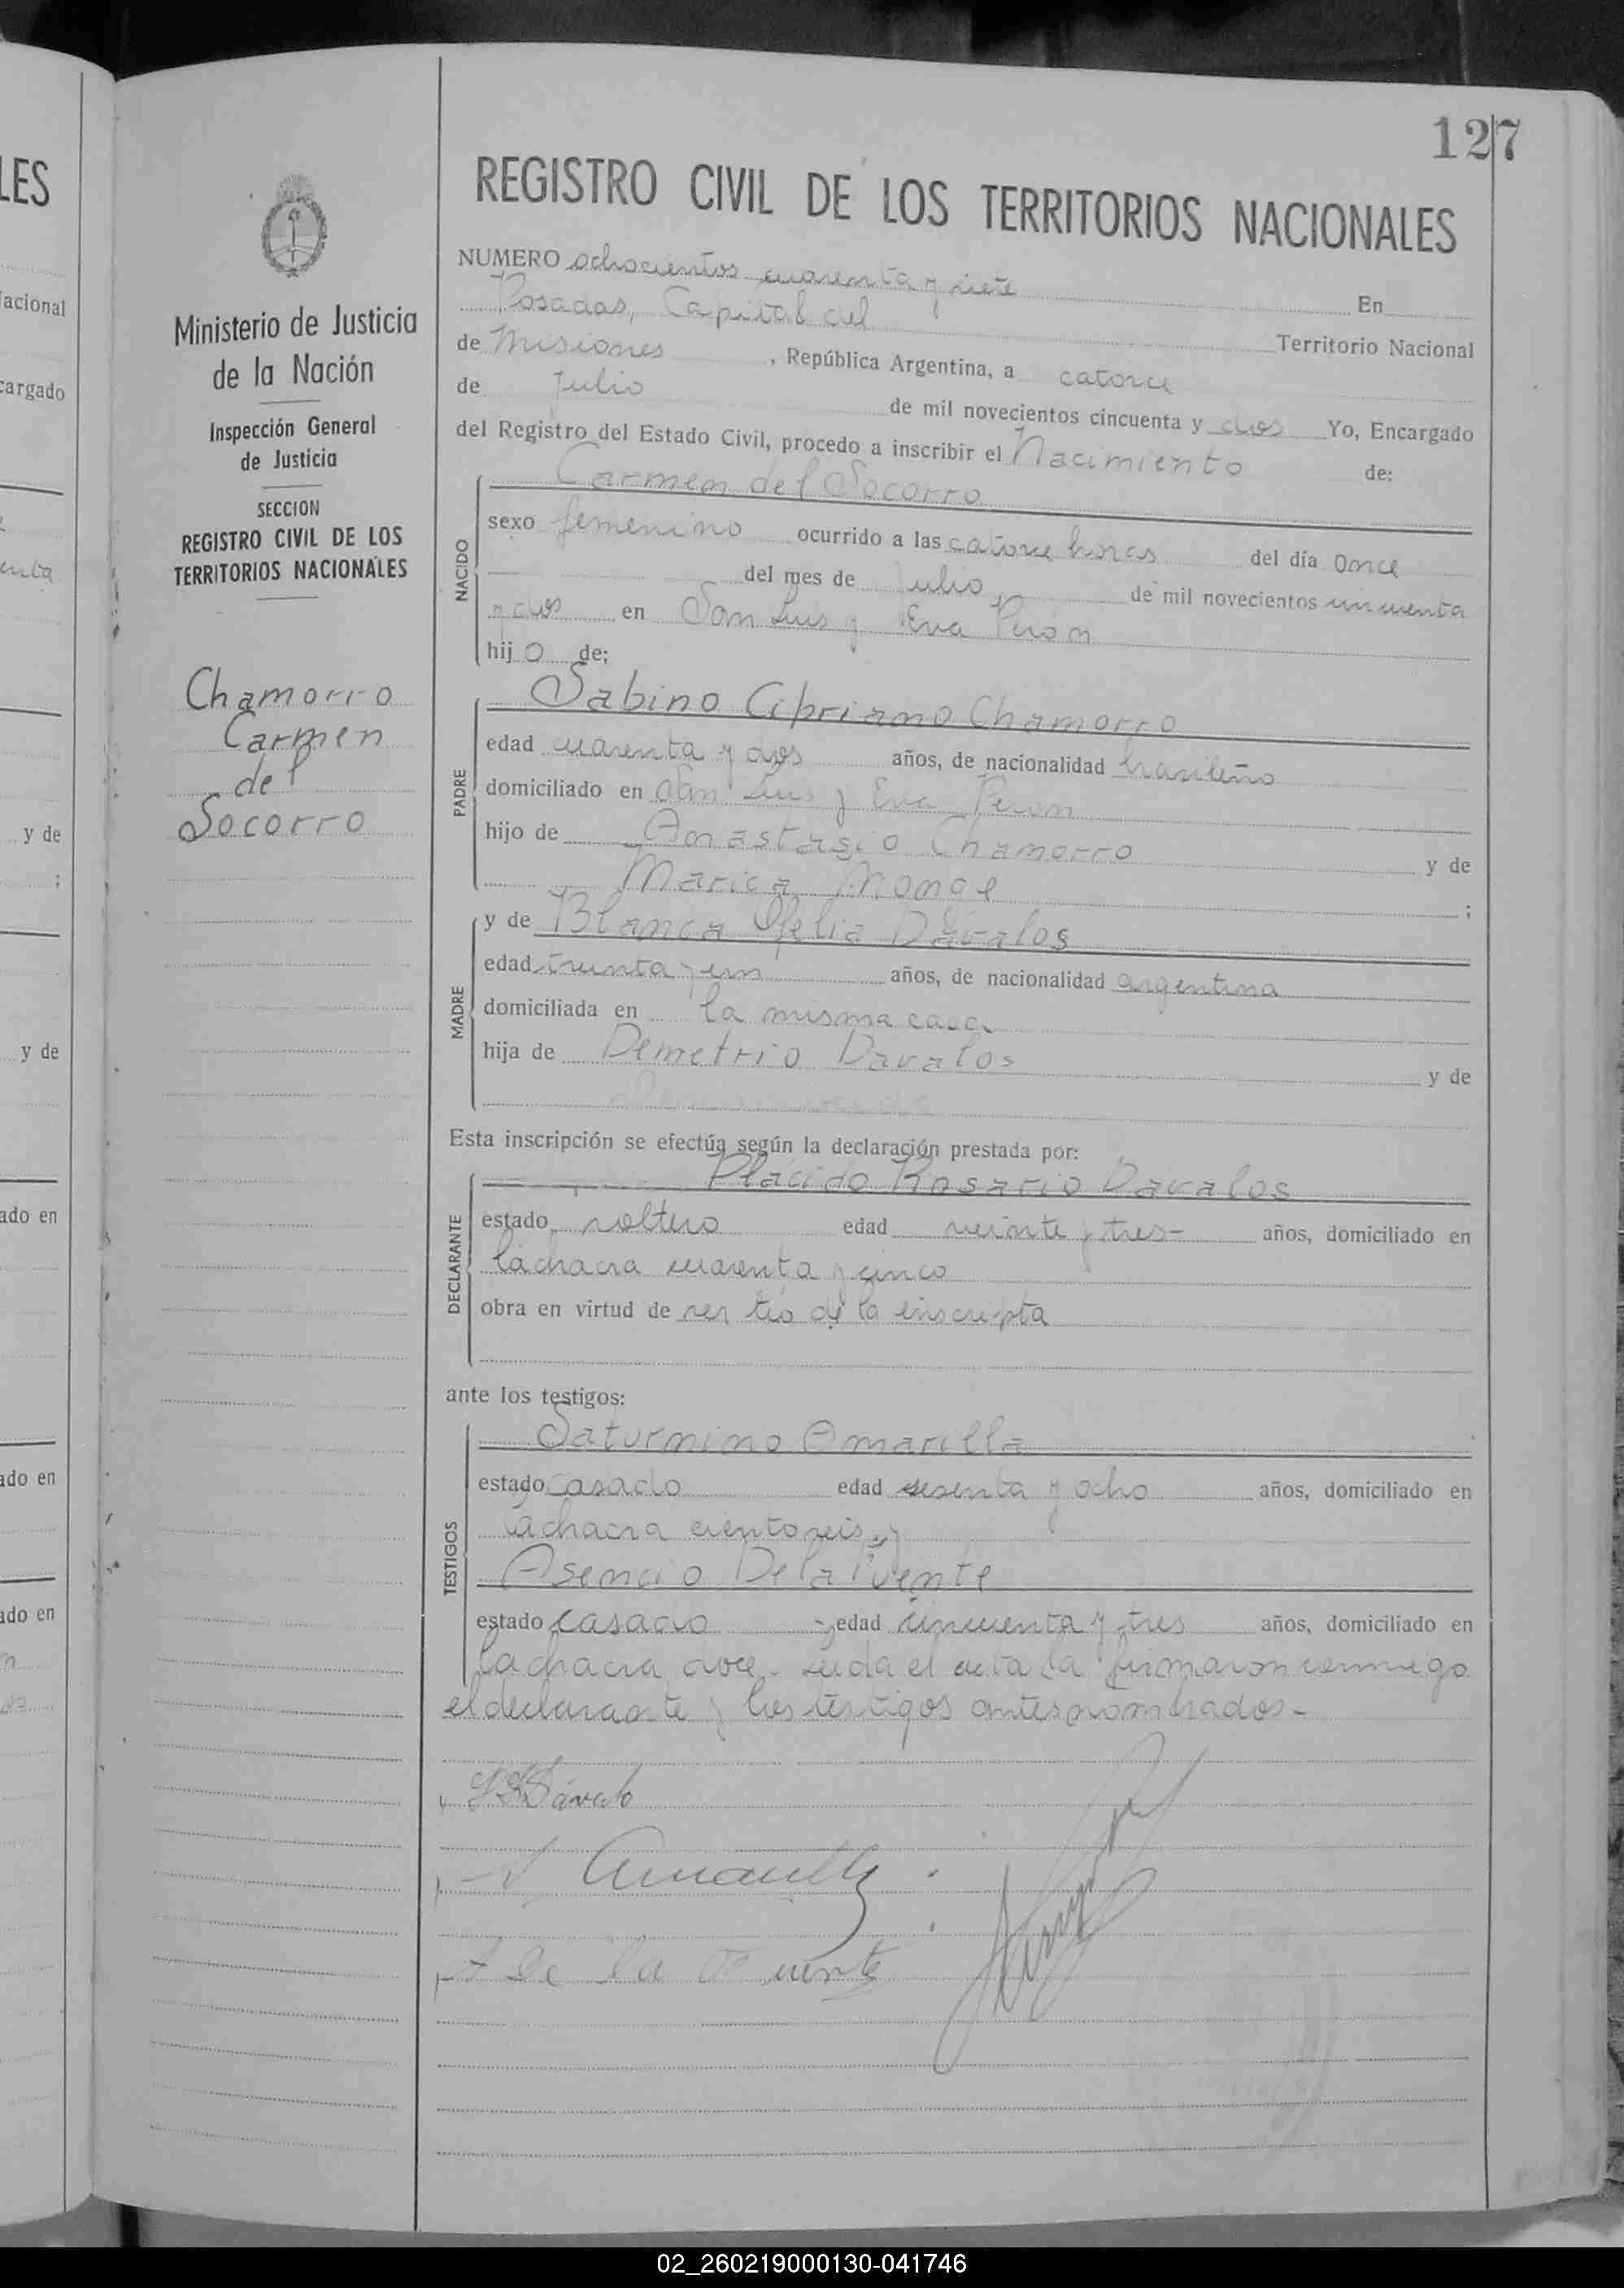 127
LES
REGISTRO CIVIL DE LOS TERRITORIOS NACIONALES
NUMERO ochocientos cuarenta y siete
Posadas, Capital del En
de Misiones, República Argentina, a catorce Territorio Nacional
de Julio de mil novecientos cincuenta y dos Yo, Encargado
del Registro del Estado Civil, procedo a inscribir el Nacimiento de:
Carmen del Socorro
NACIDO
sexo femenino ocurrido a las catorce horas del día once
del mes de Julio de mil novecientos cincuenta
y dos en San Luis y Eva Perón
hijo de:
PADRE
Sabino Cipriano Chamorro
edad cuarenta y dos años, de nacionalidad brasileño
domiciliado en San Luis y Eva Perón
hijo de Anastasio Chamorro y de
Marica Monge ;
MADRE
y de Blanca Ofelia Dávalos
edad treinta y un años, de nacionalidad argentina
domiciliada en la misma casa
hija de Demetrio Dávalos y de
Esta inscripción se efectúa según la declaración prestada por:
DECLARANTE
Plácido Rosario Dávalos
estado soltero edad veinte y tres - años, domiciliado en
la chacra cuarenta y cinco
obra en virtud de ser tío de la inscripta
ante los testigos:
TESTIGOS
Saturnino Amarilla
estado casado edad sesenta y ocho años, domiciliado en
la chacra ciento seis, y
Asencio De la Puente
estado casado y edad cincuenta y tres años, domiciliado en
la chacra doce - Leida el acta la firmaron conmigo
el declarante y los testigos antes nombrados -
Dávalo
Amarilla
A de la Puente
Ministerio de Justicia
de la Nación
Inspección General
de Justicia
SECCION
REGISTRO CIVIL DE LOS
TERRITORIOS NACIONALES
Chamorro
Carmen
del
Socorro
acional
cargado
y de
;
y de
ado en
ado en
ado en
02_260219000130-041746